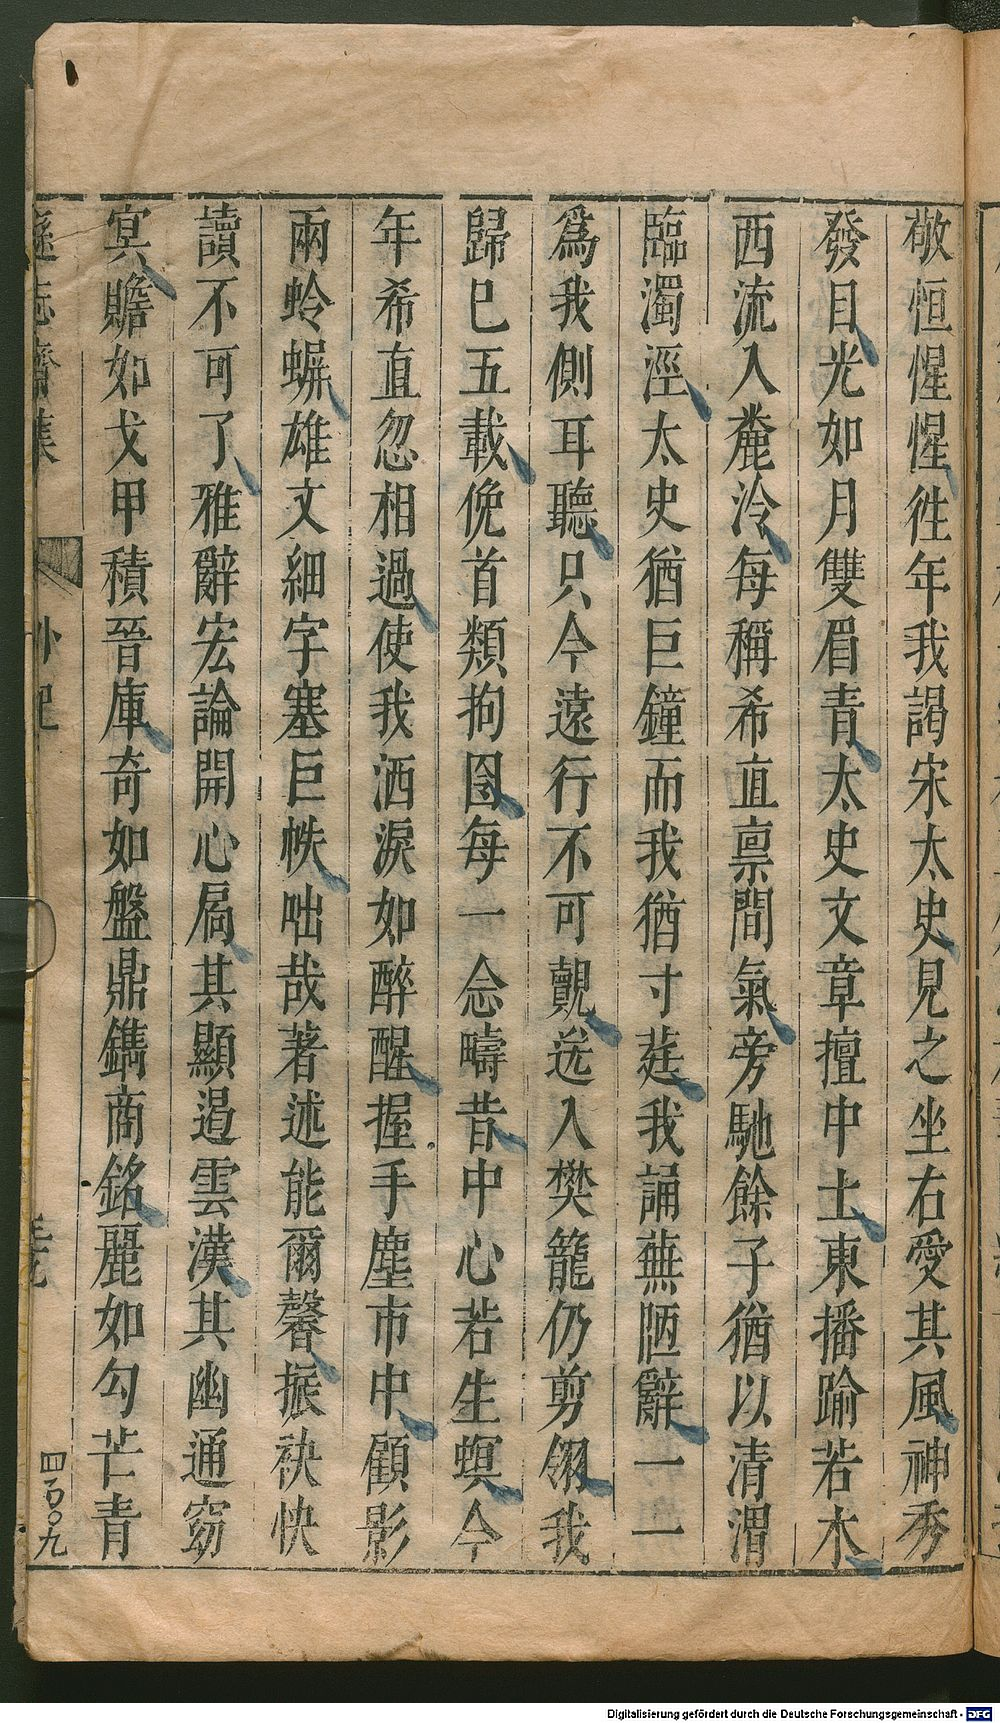 敬恒惺惺徃年我謁宋太史見之坐右愛其風神秀
發目光如月雙眉青太史文章擅中土東播踰若木
西流入麊泠每稱希直禀間氣旁馳餘子猶以清渭
臨濁涇太史猶巨鐘而我猶寸莛我誦蕪陋辭一一
爲我側耳聽只今遠行不可覿迯入樊籠仍剪翎我
歸巳五載俛首類拘囹每一念疇昔中心若生螟今
年希直忽相過使我洒淚如醉醒握手塵市中顧影
兩蛉蜅雄文細字塞巨帙咄哉著述能爾馨振袂快
讀不可了雅辭宏論開心扃其顯逷雲漢其幽通窈
冥贍如戈甲積晉庫奇如盤鼎鐫商銘麗如勾芒青
遜志齋集 外紀
四百〇九
Digitalisierung gefördert durch die Deutsche Forschungsgemeinschaft - DFG